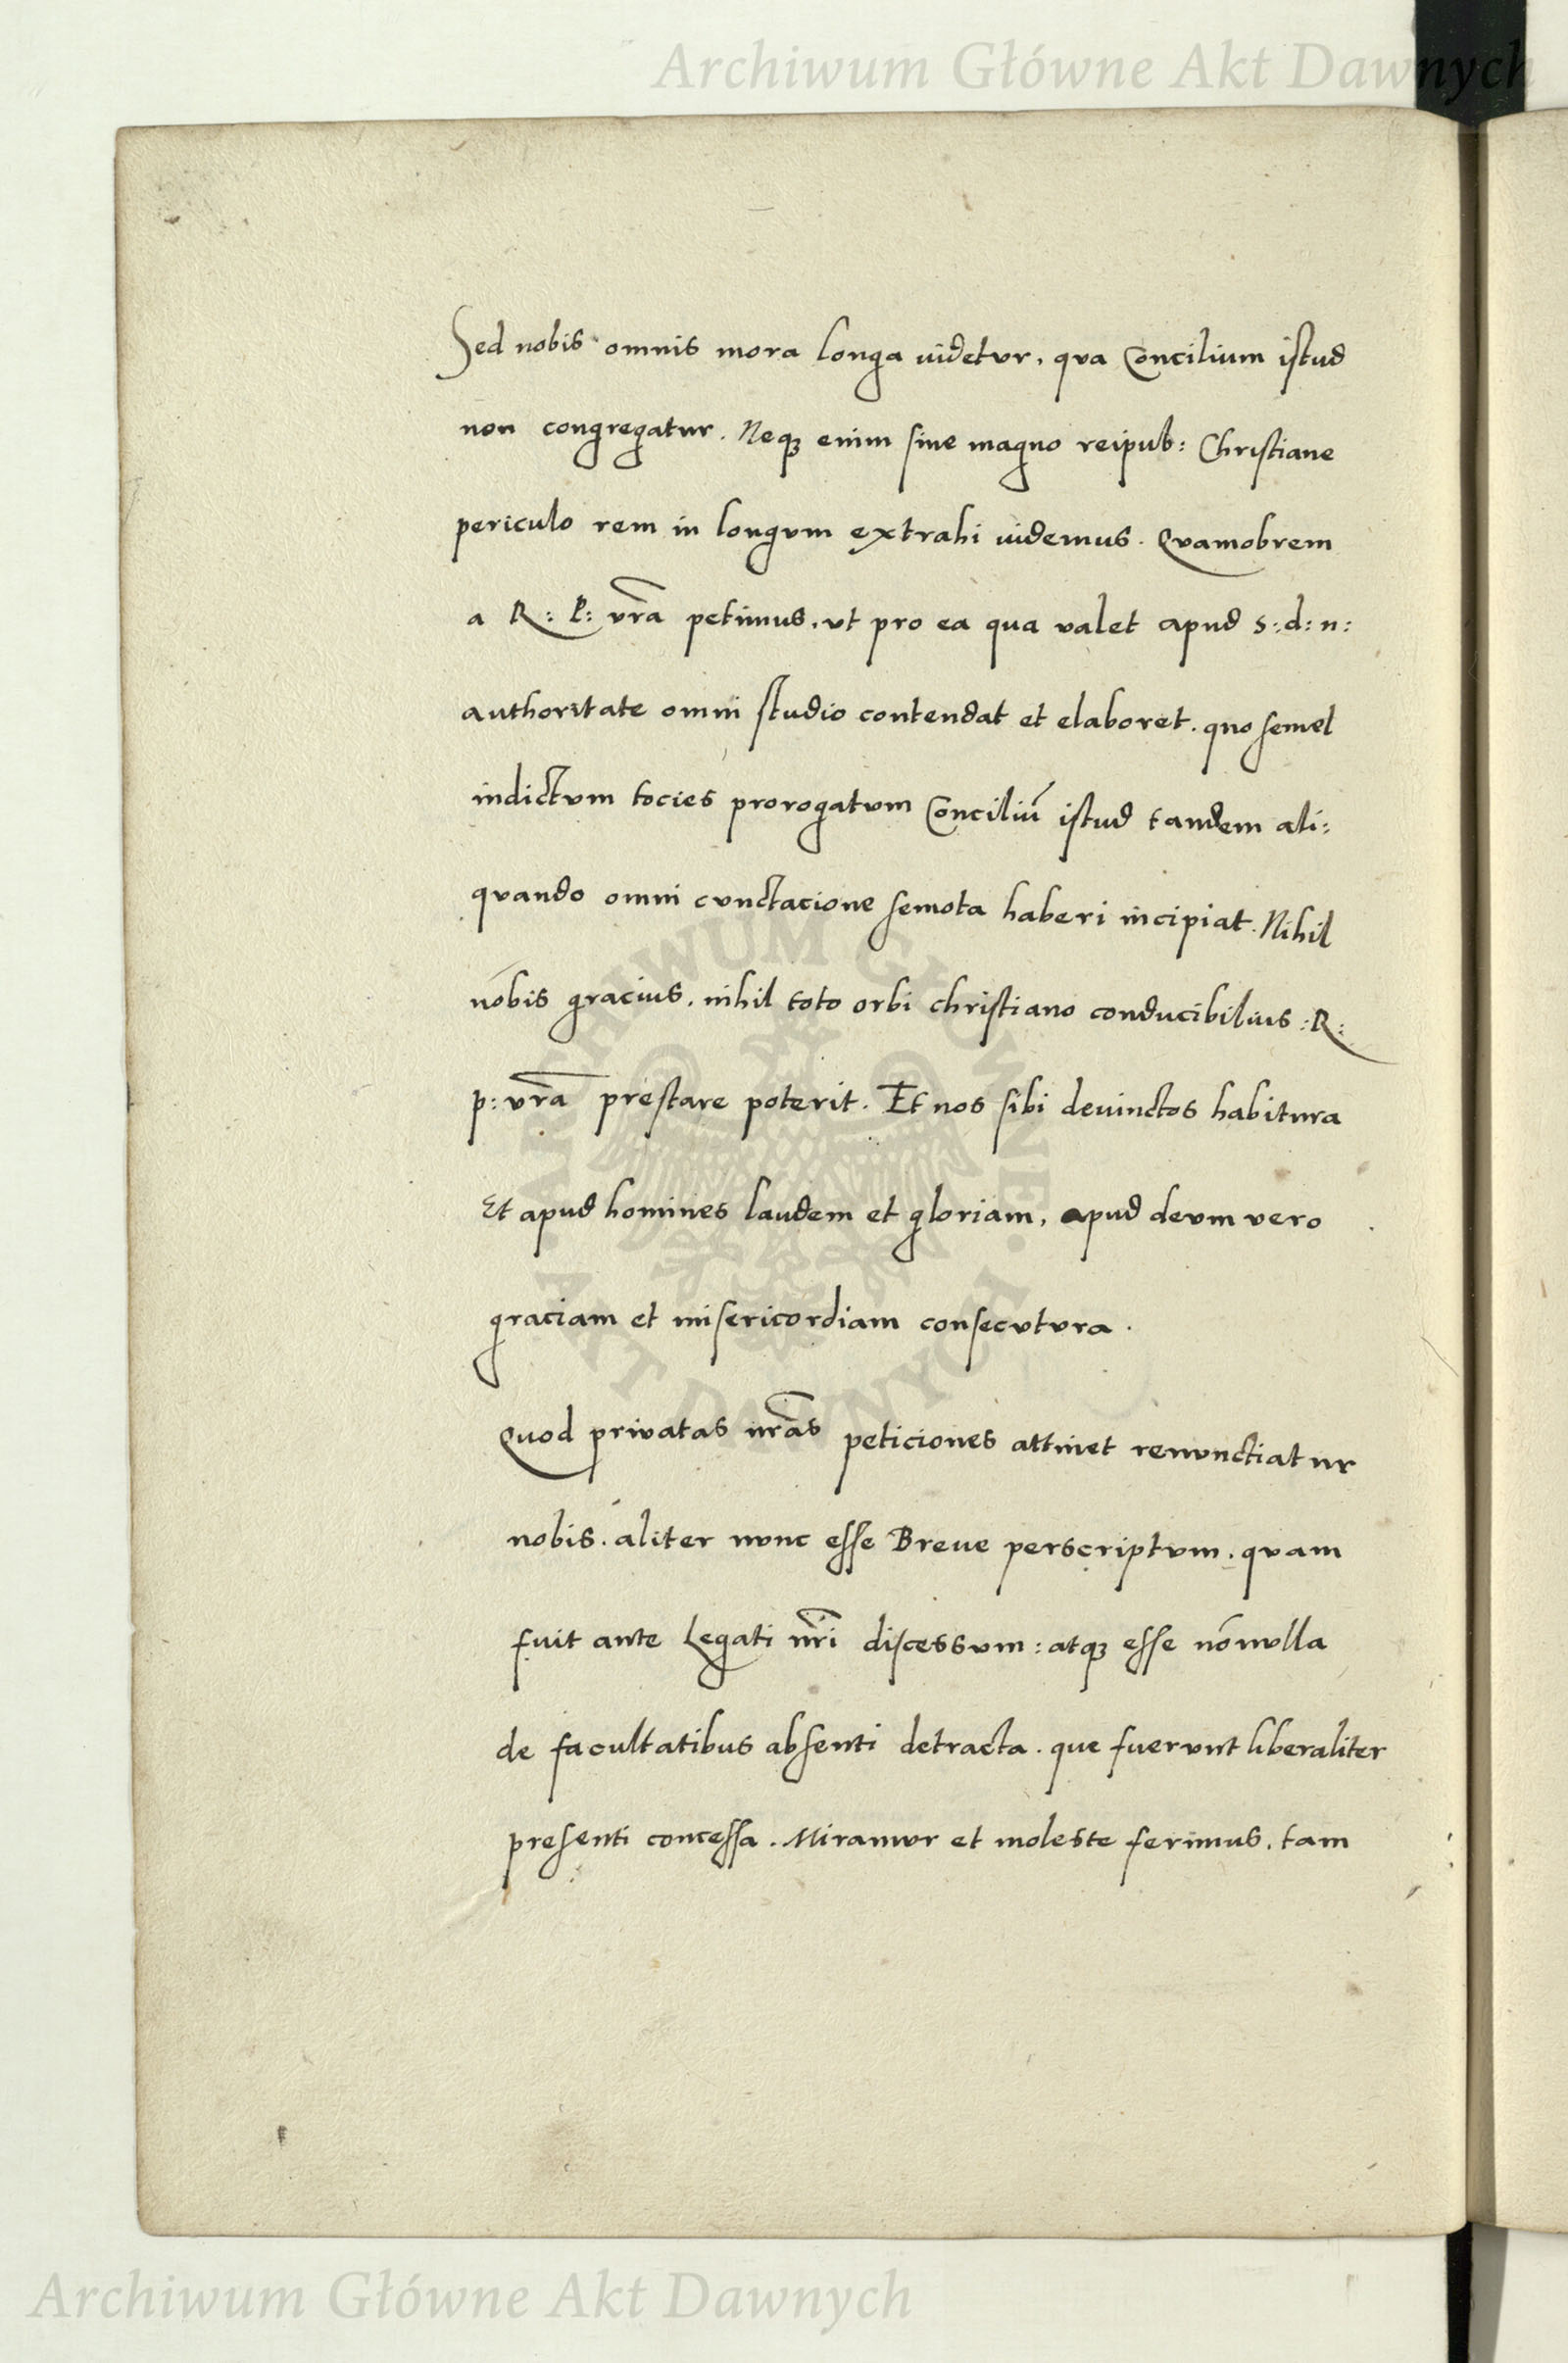 Archiwum Główne Akt Dawnych
Sed nobis omnis mora longa uidetur, qua Concilium istud
non congregatur. Neqꝫ enim sine magno reipub: Christiane
periculo rem in longum extrahi uidemus. Quamobrem
a R: P: vr̃a petimus, vt pro ea qua valet apud S: d: n:
authoritate omni studio contendat et elaboret, quo semel
indictum tocies prorogatum Conciliũ istud tandem ali:
quando omni cunctacione semota haberi incipiat. Nihil
nobis gracius, nihil toto orbi christiano conducibilius :R:
p: vr̃a prestare poterit. Et nos sibi deuinctos habitura
Et apud homines laudem et gloriam, apud deum vero
graciam et misericordiam consecutura.
Quod priuatas nr̃as peticiones attinet renunctiatur
nobis. aliter nunc esse Breue perscriptum, quam
fuit ante Legati nr̃i discessum: atqꝫ esse nõnulla
de facultatibus absenti detracta. que fuerunt liberaliter
presenti concessa. Miramur et moleste ferimus, tam
ARCHIWUM GŁÓWNE AKT DAWNYCH
Archiwum Główne Akt Dawnych